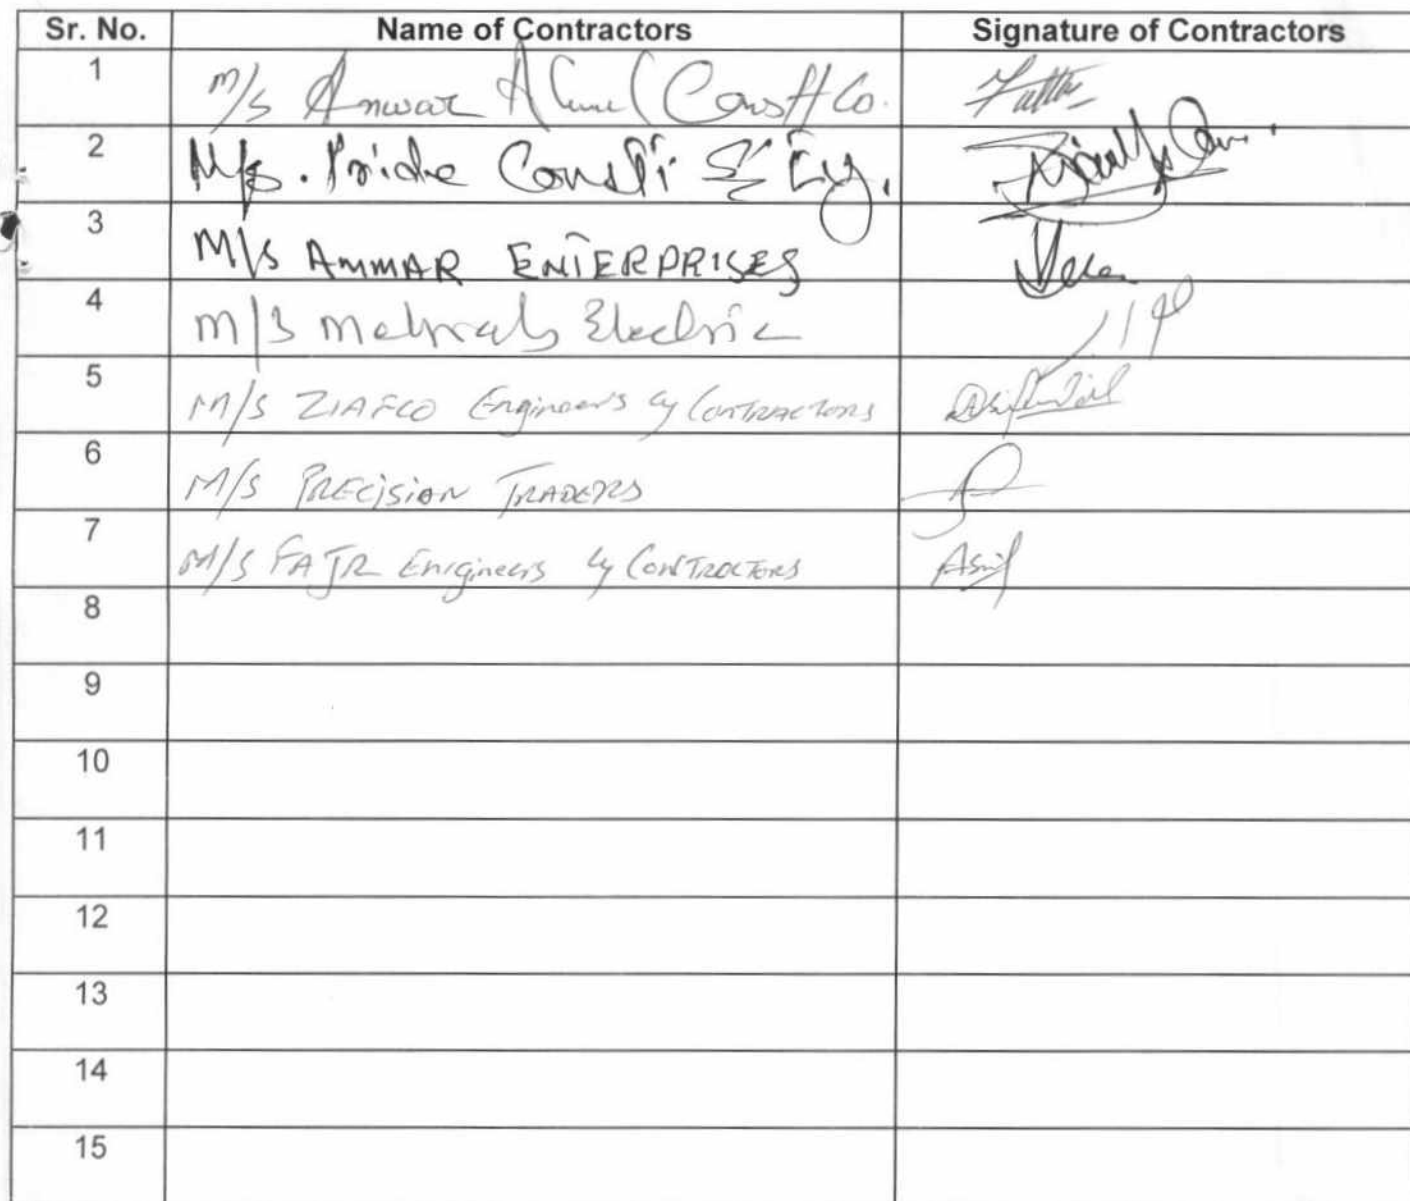 Sr. No. Name of Contractors Signature of Contractors
1 M/s Anwar Ahmed Const Co.
2 M/s. Pride Const: & Ey.
3 M/S AMMAR ENTERPRISES
4 M/S Electric
5 M/S ZIAFCO Engineers & CONTRACTORS
6 M/S PRECISION TRADERS
7 M/S FAJR Engineers & CONTRACTORS Asif
8
9
10
11
12
13
14
15